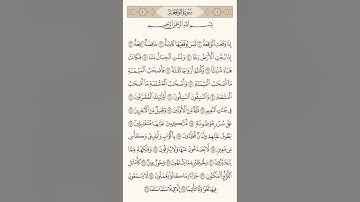 سُورَةُ الوَاقِعَةِ
بِسْمِ اللَّهِ الرَّحْمَٰنِ الرَّحِيمِ
إِذَا وَقَعَتِ الْوَاقِعَةُ ١ لَيْسَ لِوَقْعَتِهَا كَاذِبَةٌ ٢ خَافِضَةٌ رَّافِعَةٌ ٣
إِذَا رُجَّتِ الْأَرْضُ رَجًّا ٤ وَبُسَّتِ الْجِبَالُ بَسًّا ٥ فَكَانَتْ
هَبَاءً مُّنبَثًّا ٦ وَكُنتُمْ أَزْوَاجًا ثَلَاثَةً ٧ فَأَصْحَابُ الْمَيْمَنَةِ
مَا أَصْحَابُ الْمَيْمَنَةِ ٨ وَأَصْحَابُ الْمَشْأَمَةِ مَا أَصْحَابُ
الْمَشْأَمَةِ ٩ وَالسَّابِقُونَ السَّابِقُونَ ١٠ أُولَٰئِكَ الْمُقَرَّبُونَ ١١
فِي جَنَّاتِ النَّعِيمِ ١٢ ثُلَّةٌ مِّنَ الْأَوَّلِينَ ١٣ وَقَلِيلٌ مِّنَ الْآخِرِينَ ١٤
عَلَىٰ سُرُرٍ مَّوْضُونَةٍ ١٥ مُّتَّكِئِينَ عَلَيْهَا مُتَقَابِلِينَ ١٦
يَطُوفُ عَلَيْهِمْ وِلْدَانٌ مُّخَلَّدُونَ ١٧ بِأَكْوَابٍ وَأَبَارِيقَ وَكَأْسٍ
مِّن مَّعِينٍ ١٨ لَّا يُصَدَّعُونَ عَنْهَا وَلَا يُنزِفُونَ ١٩ وَفَاكِهَةٍ مِّمَّا
يَتَخَيَّرُونَ ٢٠ وَلَحْمِ طَيْرٍ مِّمَّا يَشْتَهُونَ ٢١ وَحُورٌ عِينٌ ٢٢ كَأَمْثَالِ
اللُّؤْلُؤِ الْمَكْنُونِ ٢٣ جَزَاءً بِمَا كَانُوا يَعْمَلُونَ ٢٤ لَا يَسْمَعُونَ
فِيهَا لَغْوًا وَلَا تَأْثِيمًا ٢٥ إِلَّا قِيلًا سَلَامًا سَلَامًا ٢٦